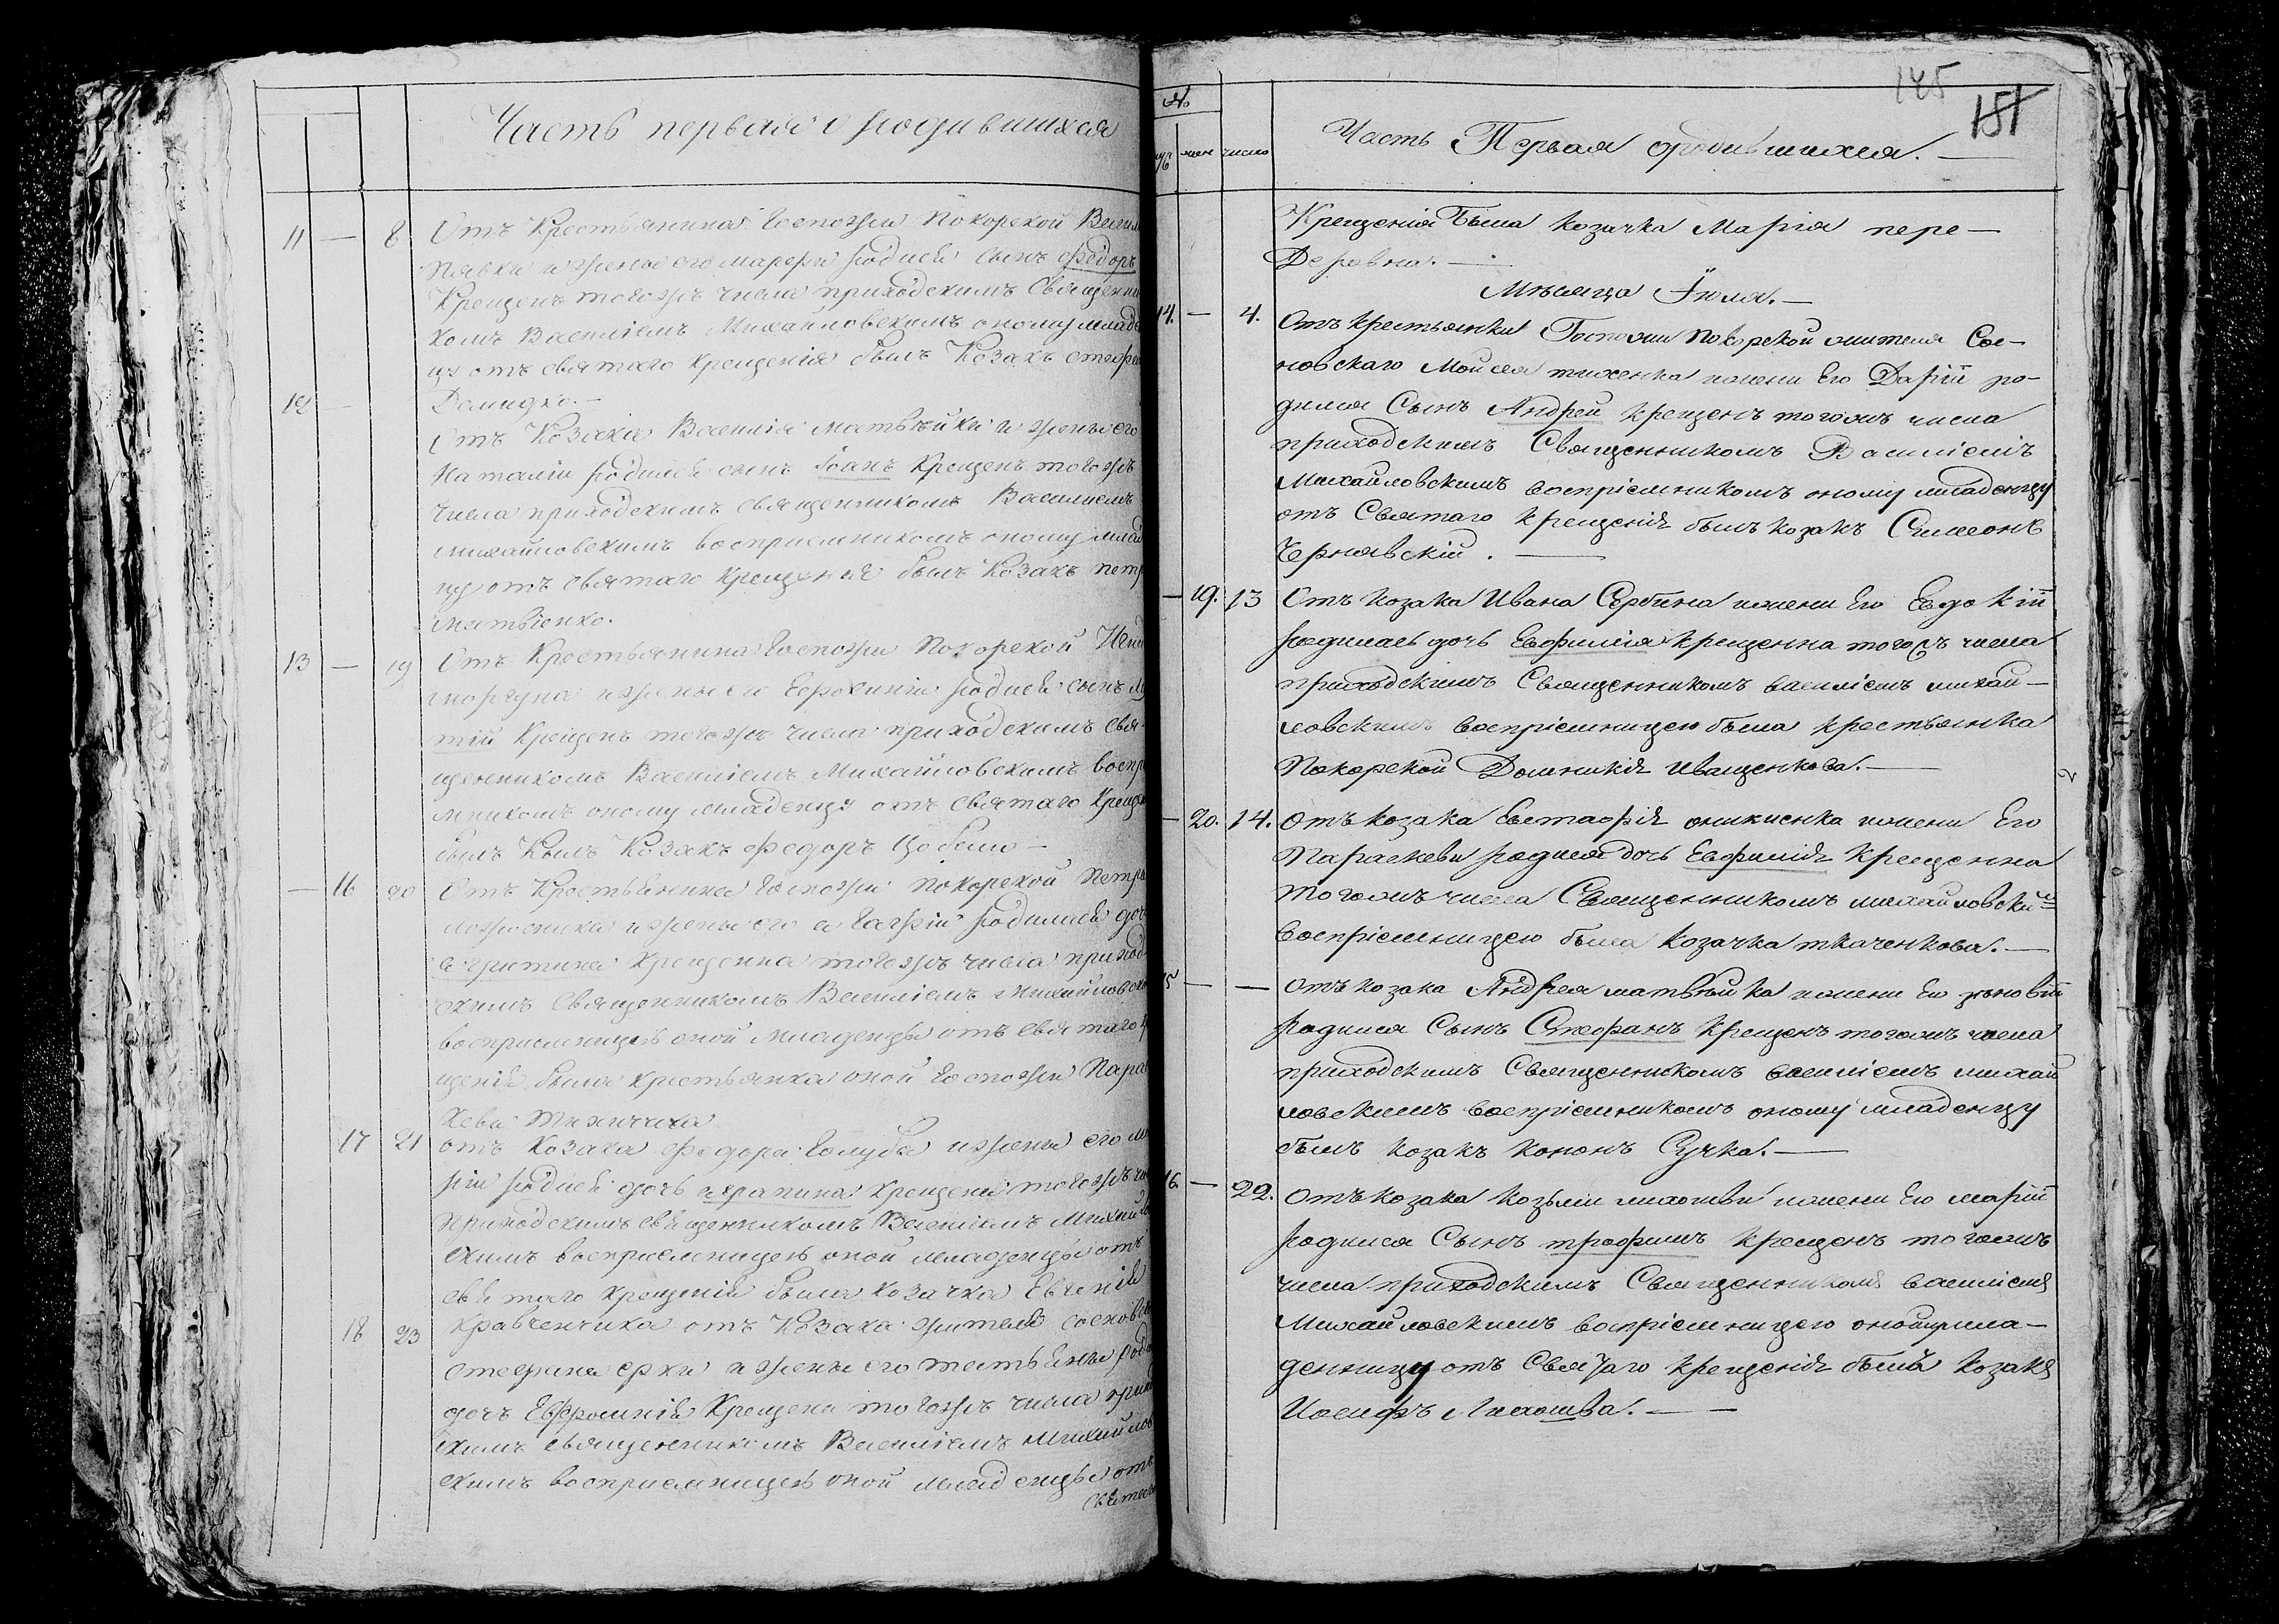 Часть первая о родившихся
11 — 8 Отъ Крестьянина Госпожи Покорской
и жены его родился сынъ Федоръ
Крещенъ тогожъ числа приходскимъ Священни
комъ Василіемъ Михайловскимъ оному младе
цу отъ святаго крещенія былъ Козакъ
12 —
Отъ Козака Василія Матвѣйка и жены его
Наталіи родился сынъ Іоанъ Крещенъ тогожъ
числа приходскимъ священникомъ Василиемъ
михайловскимъ восприемникомъ оному млад
цу отъ святаго крещения былъ Козакъ петр
матвіенко.
13 — 19 Отъ Крестьянина Госпожи Покорской
и жены его родися сынъ
Крещенъ тогожъ числа приходскимъ свя
щенникомъ Василіемъ Михайловскимъ воспр
мникомъ оному младенцу отъ святаго Крещ
былъ Былъ Козакъ Федоръ
— 16 20 Отъ Крестьянина Госпожи покорской Петр
и жены его агафіи родилась доч
агрипина Крещенна тогожъ числа приход
скимъ Священникомъ Василіемъ Михайловск
восприемницею оной младенцы отъ святаго
щенія была крестьянка оной Госпожи Пара
скева
17 21 отъ Козака Федора Голуба и жены его м
ріи родися дочь Крещена тогожъ чи
приходскимъ священникомъ Василіемъ Михайлов
скимъ восприемницею оной младенцы отъ
святаго крещенія была козачка Евгенія
18 23 кравченчиха отъ Козака жителя сосновск
стефана и жены его татьяны род
дочъ Крещена тогожъ числа прих
скимъ священникомъ Василіемъ михайлов
скимъ восприемницею оной младенцы отъ
святаго
145
151
№
муж жен число
Часть Первая ородившихся. —
Крещенія была козачка Марія пере—
Деровна. —
Мѣсяца Іюля. —
14. — 4. Отъ крестьянина Госпожи Покорской жителя Сос—
новскаго Мойсея тихенка ижени Его Даріи ро—
дился Сынъ Андрей крещенъ тогожъ числа
приходскимъ Священникомъ Василіемъ
Михайловскимъ воспріемникомъ оному младенцу
отъ Святаго крещенія былъ козакъ Симеонъ
Чернявскій. —
— 19. 13 Отъ козака Ивана Сербина ижени Его Евдокіи
родилась дочь Евфимія крещенна тогожъ числа
приходскимъ Священникомъ василіемъ михай—
ловскимъ воспріемницею была крестьянка
Покорской Домникія Иващенкова. —
— 20. 14. Отъ козака Евстафія оникиенка ижени Его
Параскеви родися дочь Евфимія Крещенна
тогожъ числа Священникомъ михайловским
воспріемницею была козачка ткаченкова. —
15 — — Отъ козака Андрея матвѣйка ижени Его зѣновіи
родился Сынъ Стефанъ крещенъ тогожъ числа
приходскимъ Священникомъ василіемъ михай
ловскимъ воспріемникомъ оному младенцу
былъ козакъ кононъ Сучка. —
16. — 22. Отъ козака козьми лихошви ижени Его маріи
родился Сынъ трофимъ крещенъ тогожъ
числа приходскимъ Священникомъ василіемъ
Михайловскимъ воспріемницею мла—
денцу отъ Святаго крещенія былъ козакъ
Иосифъ Лихошва. —